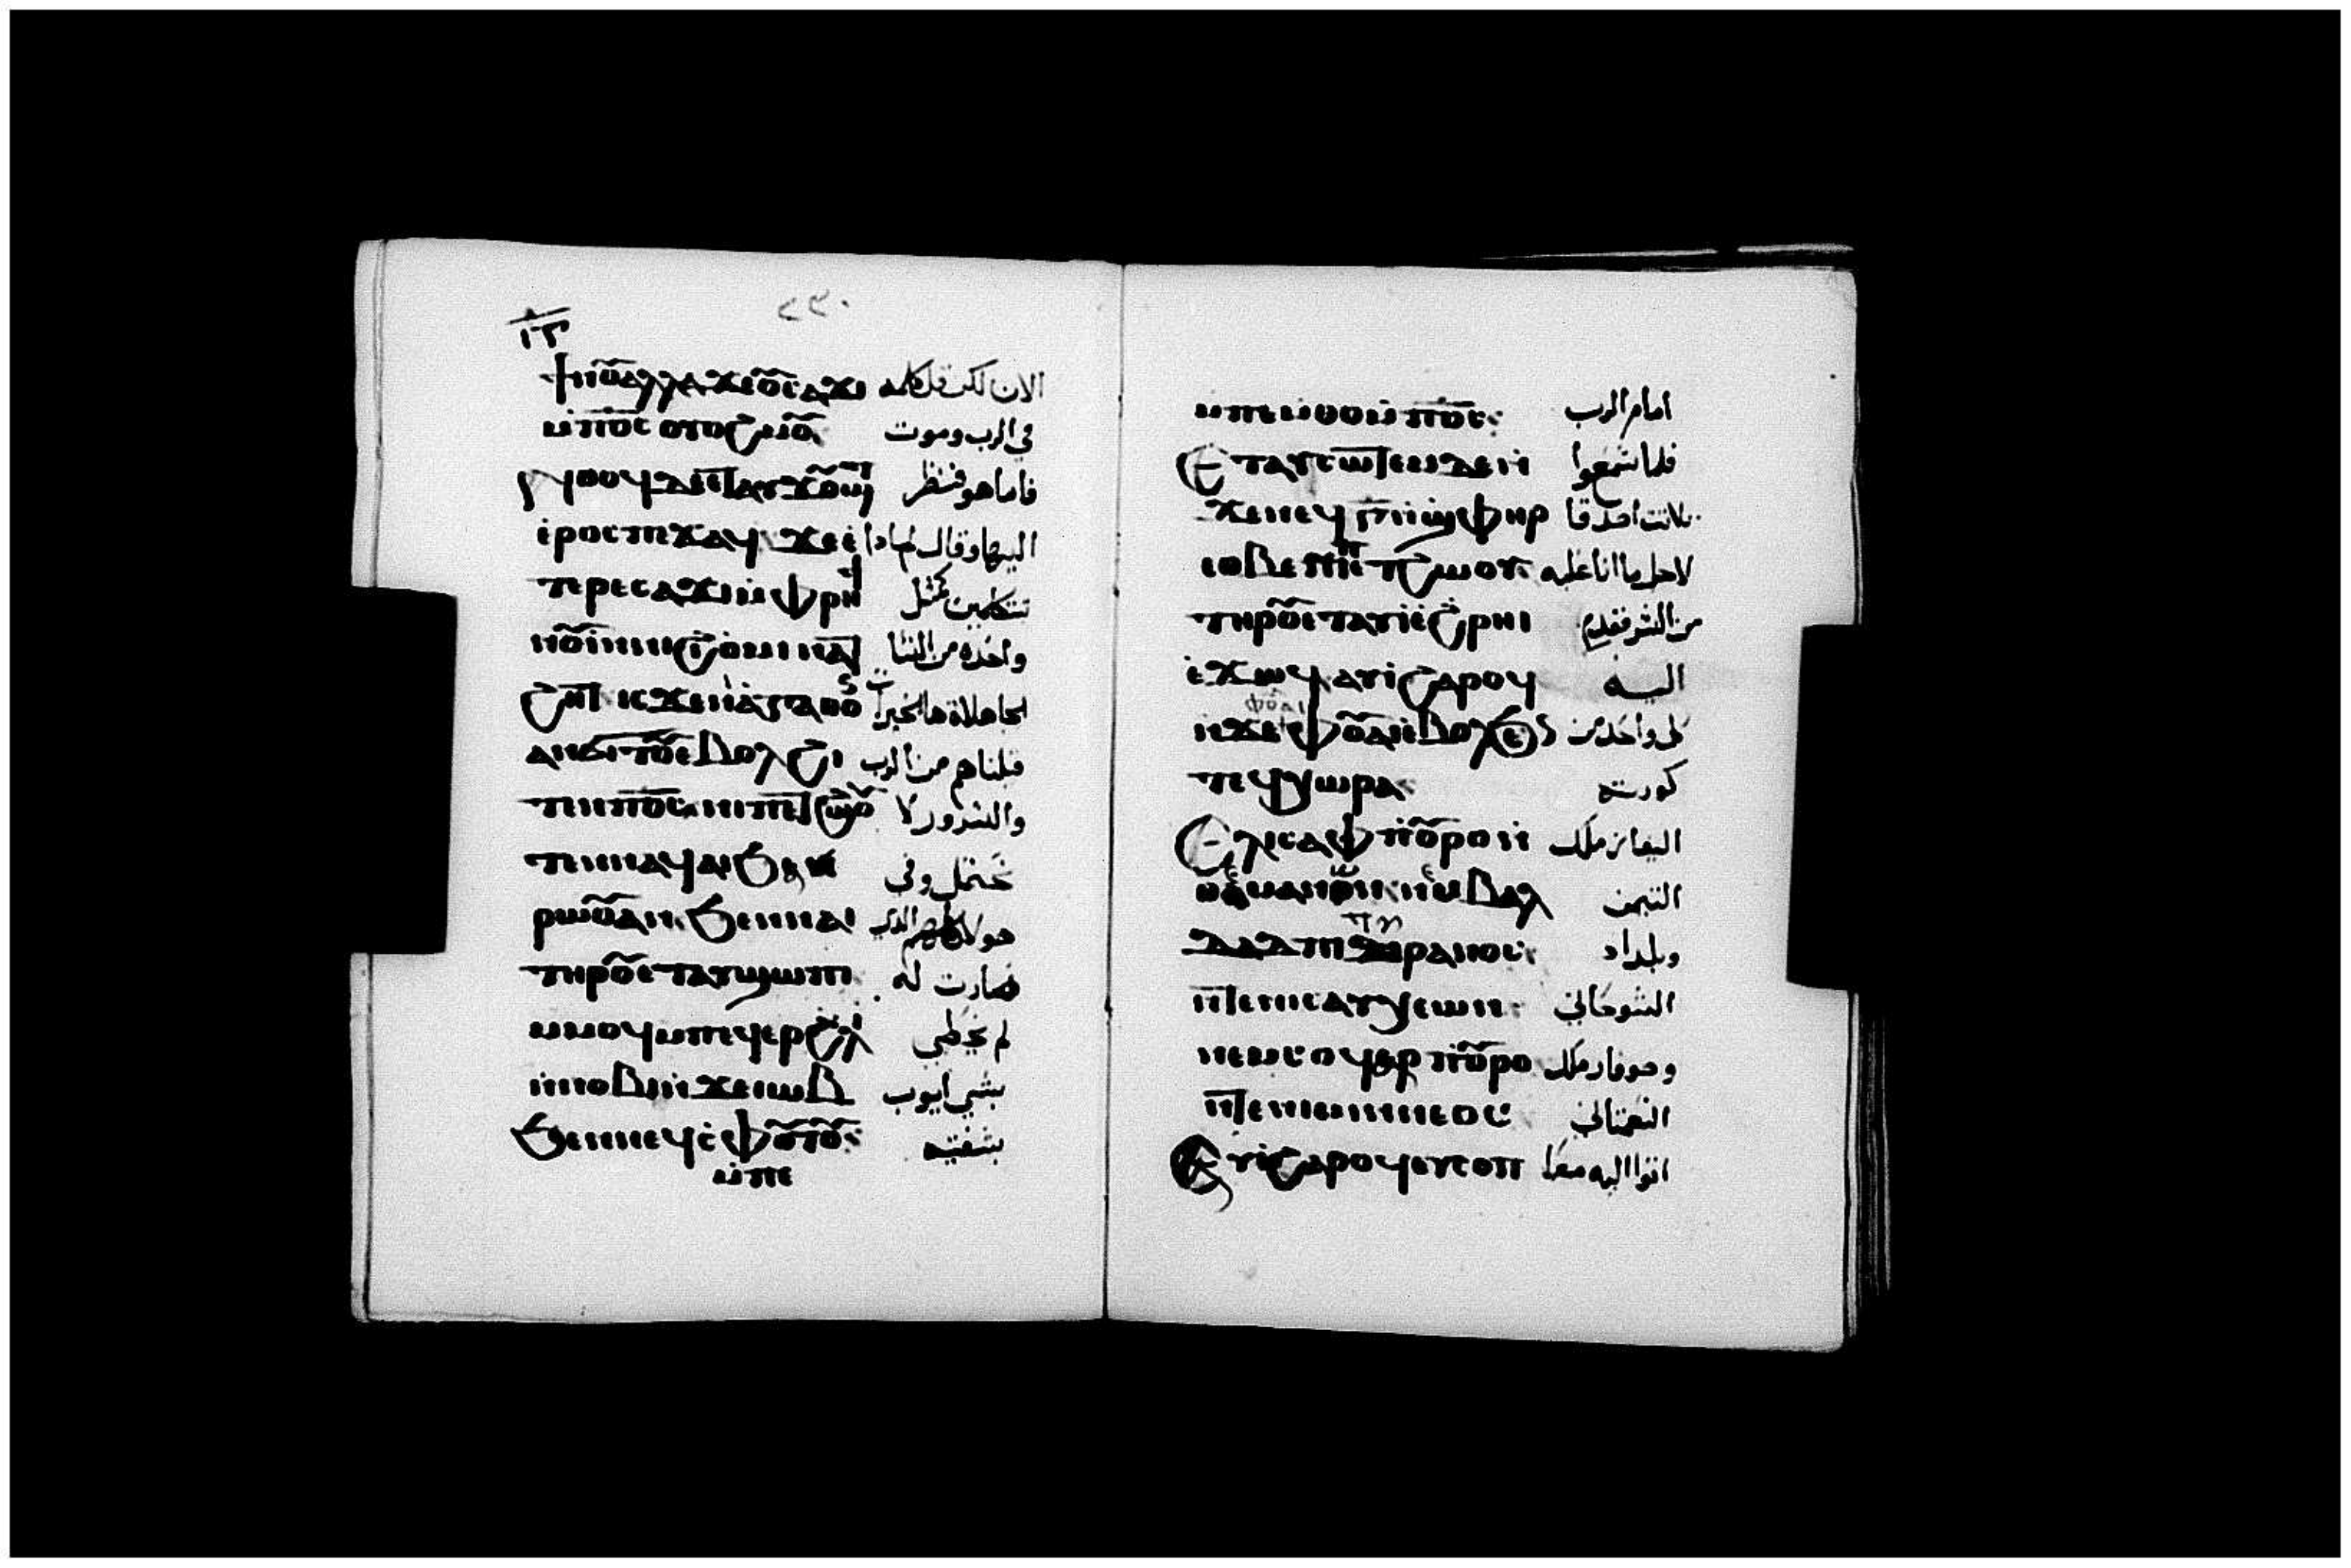 ϯⲛⲟⲩ ⲁⲗⲗⲁ ϫⲉ ⲟⲩⲥⲁϫⲓ الان لكن قل كلمه
ⲙⲡⲟ̅ⲥ̅ ⲟⲩⲟϩ ⲙⲟⲩ في الرب وموت
ⲛⲑⲟϥ ⲇⲉ ⲉⲧⲁϥϫⲟⲩϣⲧ فاما هو فنظر
ⲉⲣⲟⲥ ⲡⲉϫⲁϥ ϫⲉ ⲉ اليها وقال لماذا
ⲧⲉⲣⲉⲥⲁϫⲓ ⲙⲫⲣⲏϯ تتكلمين كمثل
ⲛⲟⲩⲓ ⲛⲛⲓϩⲓⲟⲙⲓ ⲛⲁⲧ واحده من النسا
ϩⲏⲧ ⲓⲥϫⲉ ⲛⲓⲁⲅⲁⲑⲟⲛ الجاهلات هل الخيرات
ⲁⲛϭⲓⲧⲟⲩ ⲉⲃⲟⲗϩⲓ قبلناهم من الرب
ⲧⲉⲛ ⲡⲟ̅ⲥ̅ ⲛⲓⲡⲉⲧϩⲱⲟⲩ والشرور لا
ⲧⲉⲛⲛⲁϥⲁⲓ ϧⲁ نحتمل وفي
ⲣⲱⲟⲩ ⲁⲛ ϧⲉⲛ ⲛⲁⲓ هولاي كلهم الذي
ⲧⲏⲣⲟⲩ ⲉⲧⲁⲩϣⲱⲡⲓ صارت له
ⲙⲙⲟϥ ⲙⲡⲉϥⲉⲣϩⲗⲓ لم يخطي
ⲛⲛⲟⲃⲓ ⲛϫⲉ ⲓⲱⲃ بشي ايوب
ϧⲉⲛ ⲛⲉϥⲥⲫⲟⲧⲟⲩ بشفتيه
ⲙⲡⲉ
ⲙⲡⲉⲙⲑⲟ ⲙⲡⲟ̅ⲥ̅ امام الرب
ⲉⲧⲁⲩⲥⲱⲧⲉⲙ ⲇⲉ ⲛ فلما سمعوا
ϫⲉ ⲛⲉϥ ⲅ̅ ⲛϣⲫⲏⲣ ثلاثت اصدقا
ⲉⲑⲃⲉ ⲛⲓⲡⲉⲧϩⲱⲟⲩ لاجل ما اتا عليه
ⲧⲏⲣⲟⲩ ⲉⲧⲁⲩⲓ ⲉϩⲣⲏⲓ من الشر فقدم
ⲉϫⲱϥ ⲁⲩⲓ ϩⲁⲣⲟϥ اليه
ⲛϫⲉ ⲫⲟⲩⲁⲓ ⲉⲃⲟⲗ ϧⲉⲛ كل واحد من
ⲧⲉϥⲭⲱⲣⲁ كورته
ⲉⲗⲓⲫⲁⲥ ⲡⲟⲩⲣⲟ ⲛ اليفاز ملك
ⲑⲉⲙⲁⲛⲱⲛ ⲛⲉⲙ ⲃⲁⲗ التيمن
ⲇⲁⲇ ⲡⲓⲧⲩⲣⲁⲛⲛⲟⲥ وبلداد
ⲛⲧⲉ ⲛⲓⲥⲁⲩⲭⲉⲱⲛ الشوحاني
ⲛⲉⲙ ⲥⲟϥⲉⲣ ⲡⲟⲩⲣⲟ وصوفار ملك
ⲛⲧⲉ ⲛⲓⲙⲓⲛⲛⲉⲟⲥ النعمتاني
ⲁⲩⲓ ϩⲁⲣⲟϥ ⲉⲩⲥⲟⲡ اتوا اليه معا